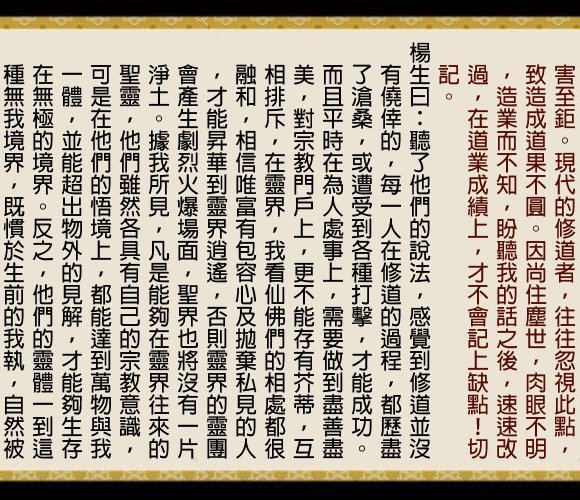 害至鉅。現代的修道者，往往忽視此點，
致造成道果不圓。因尚住塵世，肉眼不明
，造業而不知，盼聽我的話之後，速速改
過，在道業成績上，才不會記上缺點！切
記。
楊生曰：聽了他們的說法，感覺到修道並沒
有僥倖的，每一人在修道的過程，都歷盡
了滄桑，或遭受到各種打擊，才能成功。
而且平時在為人處事上，需要做到盡善盡
美，對宗教門戶上，更不能存有芥蒂，互
相排斥，在靈界，我看仙佛們的相處都很
融和，相信唯富有包容心及拋棄私見的人
，才能昇華到靈界逍遙，否則靈界的靈團
會產生劇烈火爆場面，聖界也將沒有一片
淨土。據我所見，凡是能夠在靈界往來的
聖靈，他們雖然各具有自己的宗教意識，
可是在他們的悟境上，都能達到萬物與我
一體，並能超出物外的見解，才能夠生存
在無極的境界。反之，他們的靈體一到這
種無我境界，既慣於生前的我執，自然被